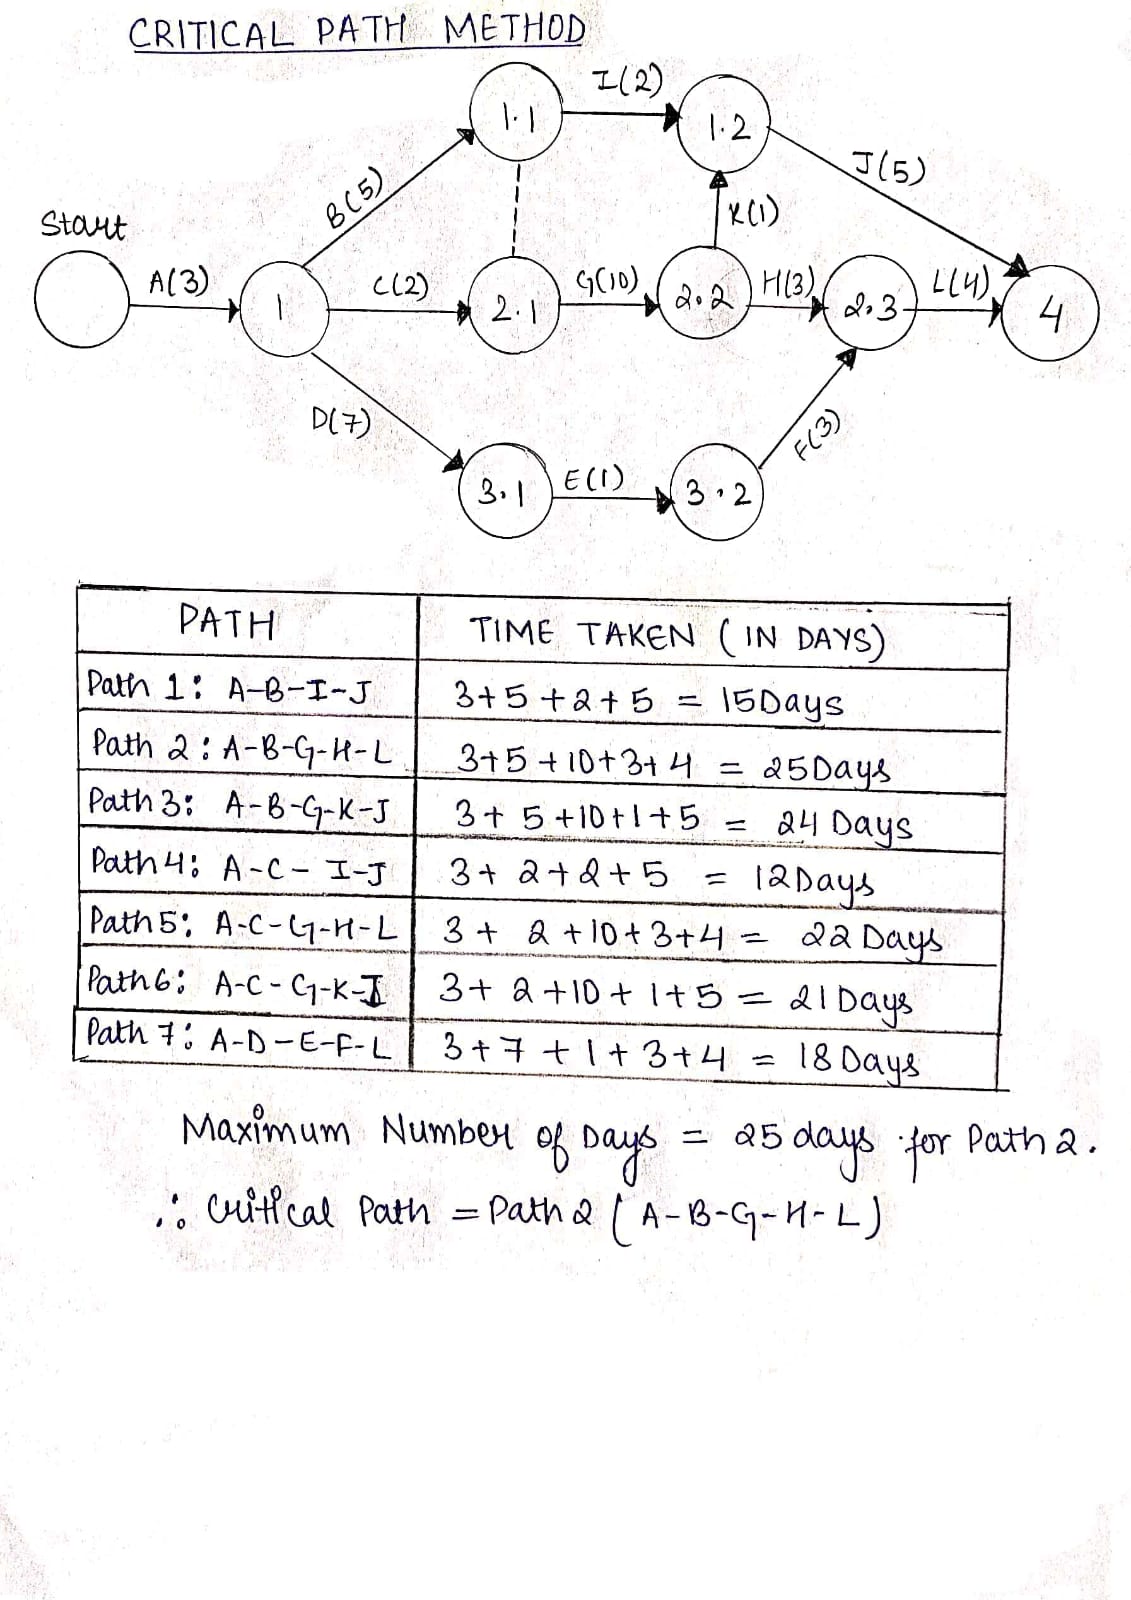 CRITICAL PATH METHOD
I(2)
1.1
1.2
J(5)
B(5)
K(1)
Start
A(3)
C(2)
G(10)
H(3)
L(4)
1
2.1
2.2
2.3
4
D(7)
F(3)
E(1)
3.1
3.2
PATH TIME TAKEN (IN DAYS)
Path 1: A-B-I-J 3+5+2+5 = 15Days
Path 2: A-B-G-H-L 3+5+10+3+4 = 25Days
Path 3: A-B-G-K-J 3+5+10+1+5 = 24 Days
Path 4: A-C-I-J 3+2+2+5 = 12Days
Path 5: A-C-G-H-L 3+2+10+3+4 = 22 Days
Path 6: A-C-G-K-J 3+2+10+1+5 = 21 Days
Path 7: A-D-E-F-L 3+7+1+3+4 = 18 Days
Maximum Number of Days = 25 days for Path 2.
∴ Critical Path = Path 2 (A-B-G-H-L)